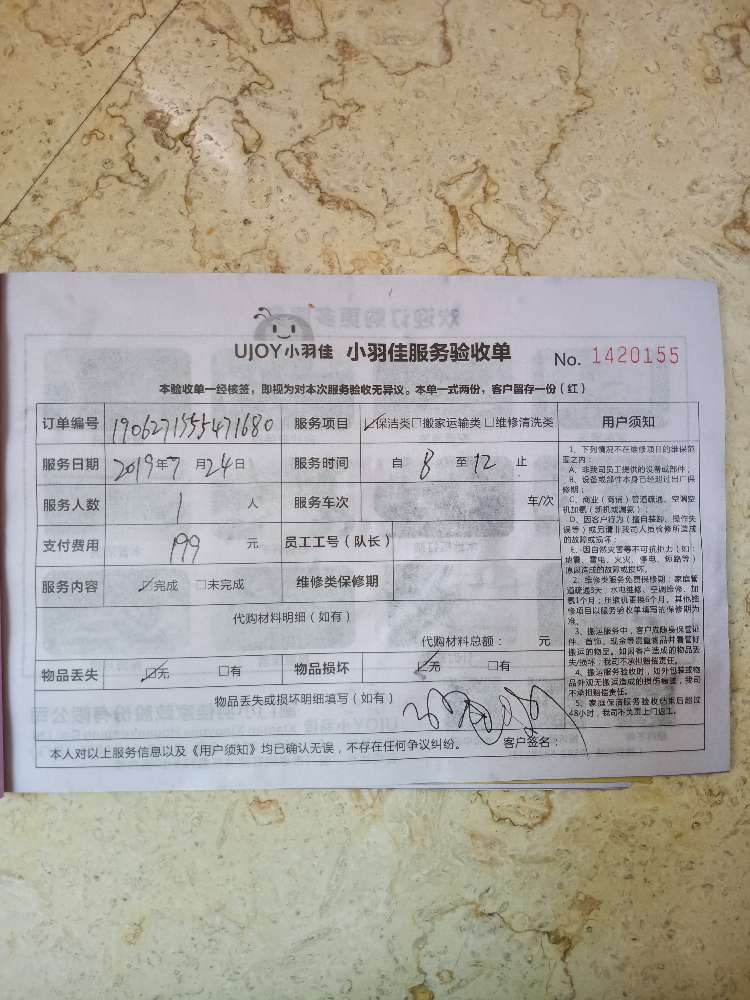 UJOY小羽佳 小羽佳服务验收单 No. 1420155
本验收单一经核签，即视为对本次服务验收无异议。本单一式两份，客户留存一份（红）
订单编号 190627155471680 服务项目 保洁类 搬家运输类 维修清洗类 用户须知
服务日期 2019年7月24日 服务时间 自 8 至 12 止
服务人数 1 人 服务车次 车/次
支付费用 199 元 员工工号（队长）
服务内容 完成 未完成 维修类保修期
代购材料明细（如有）
代购材料总额： 元
物品丢失 无 有 物品损坏 无 有
物品丢失或损坏明细填写（如有）
客户签名：
本人对以上服务信息以及《用户须知》均已确认无误，不存在任何争议纠纷。
1、下列情况不在维修项目的维保范
围之内：
A、非我司员工提供的设备或部件；
B、设备或部件本身已经超过出厂保
修期；
C、商业（商铺）管道疏通、空调空
机加氟（新机或漏氟）；
D、因客户行为（擅自装卸、操作失
误等）或另请非我司人员检修所造成
的故障或损坏；
E、因自然灾害等不可抗拒力（如：
地震、雷电、火灾、停电、短路等）
原因造成的故障或损坏。
2、维修类服务免费保修期：家庭管
道疏通3天；水电维修、空调维修、加
氟1个月；压缩机更换6个月，其他维
修项目以服务验收单填写法保修期为
准。
3、搬运服务中，客户应随身保管证
件、首饰、现金等贵重物品并看管好
搬运的物品。如因客户造成的物品丢
失/损坏，我司不承担赔偿责任。
4、搬运服务验收时，如外包装或物
品外观无搬运造成的损伤痕迹，我司
不承担赔偿责任。
5、家庭保洁服务验收结束后超过
48小时，我司不负责上门返工。